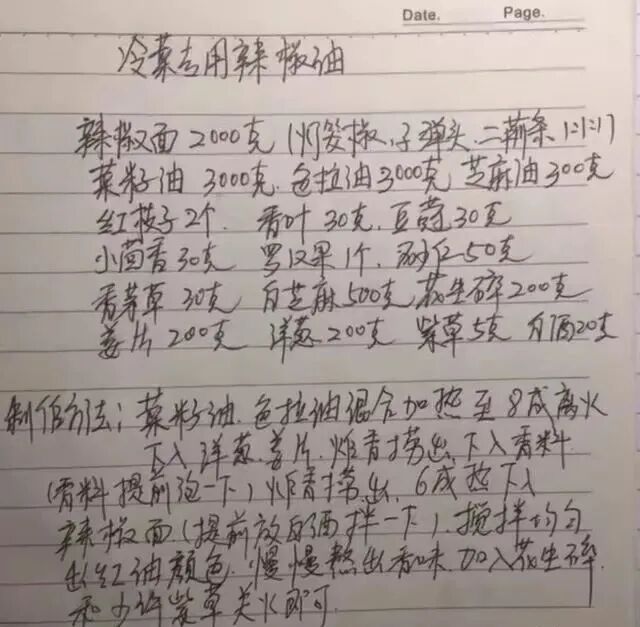 Date. Page.
冷菜专用辣椒油
辣椒面 2000克 (灯笼椒、子弹头、二荆条 1:1:1)
菜籽油 3000克 色拉油3000克 芝麻油300克
红枝子2个. 香叶 30克. 豆蔻30克
小茴香30克 罗汉果1个. 砂仁50克
香茅草 30克 白芝麻500克 花生碎200克
姜片 200克 洋葱200克 紫草5克 白酒20克
制作方法: 菜籽油.色拉油混合加热至8成离火
下入洋葱.姜片.炸香捞出.下入香料
(香料提前泡一下) 炸香捞出. 6成热下入
辣椒面.(提前放白酒拌一下). 搅拌均匀
出红油颜色.慢慢熬出香味.加入花生碎.
和少许紫草关火即可.